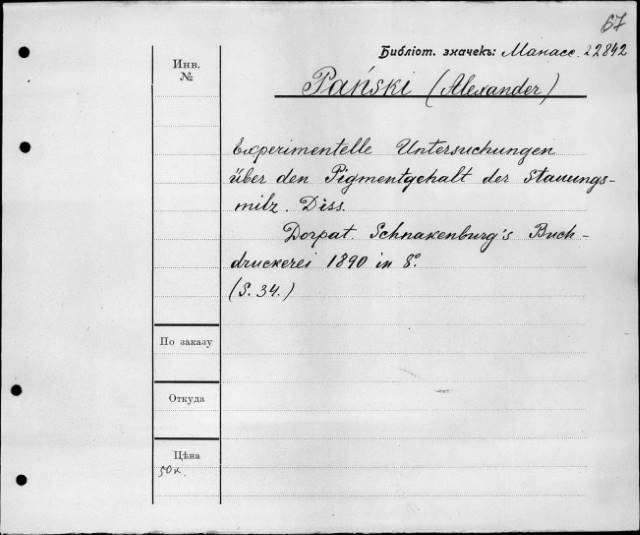 67
Библіот. значекъ: Манасс. 22842
Инв.
№
Pański (Alexander)
Experimentelle Untersuchungen
über den Pigmentgehalt der Stauungs-
milz. Diss.
Dorpat. Schnakenburg's Buch-
druckerei 1890 in 8°
(S. 34.)
По заказу
Откуда
Цѣна
50 к.